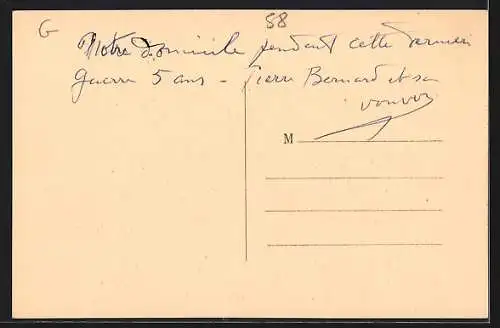 G 58
Notre domicile pendant cette derniere
guerre 5 ans - Pierre Bernard et sa
M